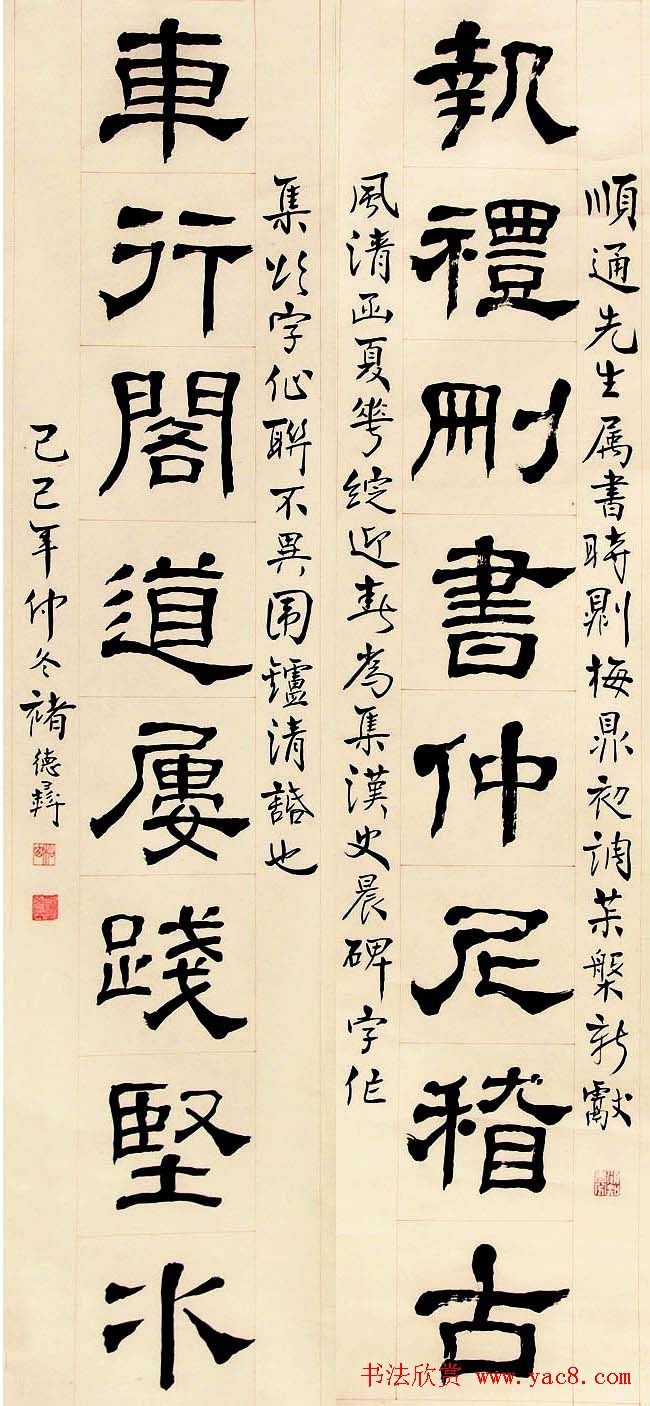 順通先生属書時則梅鼎初調茶槃新獻
執禮刪書仲尼稽古
風清函夏華綻近春為集漢史晨碑字作
集字作聯不異围鑪清話也
車行閣道屢踐堅水
己巳年仲冬褚德彝
书法欣赏 www.yac8.com